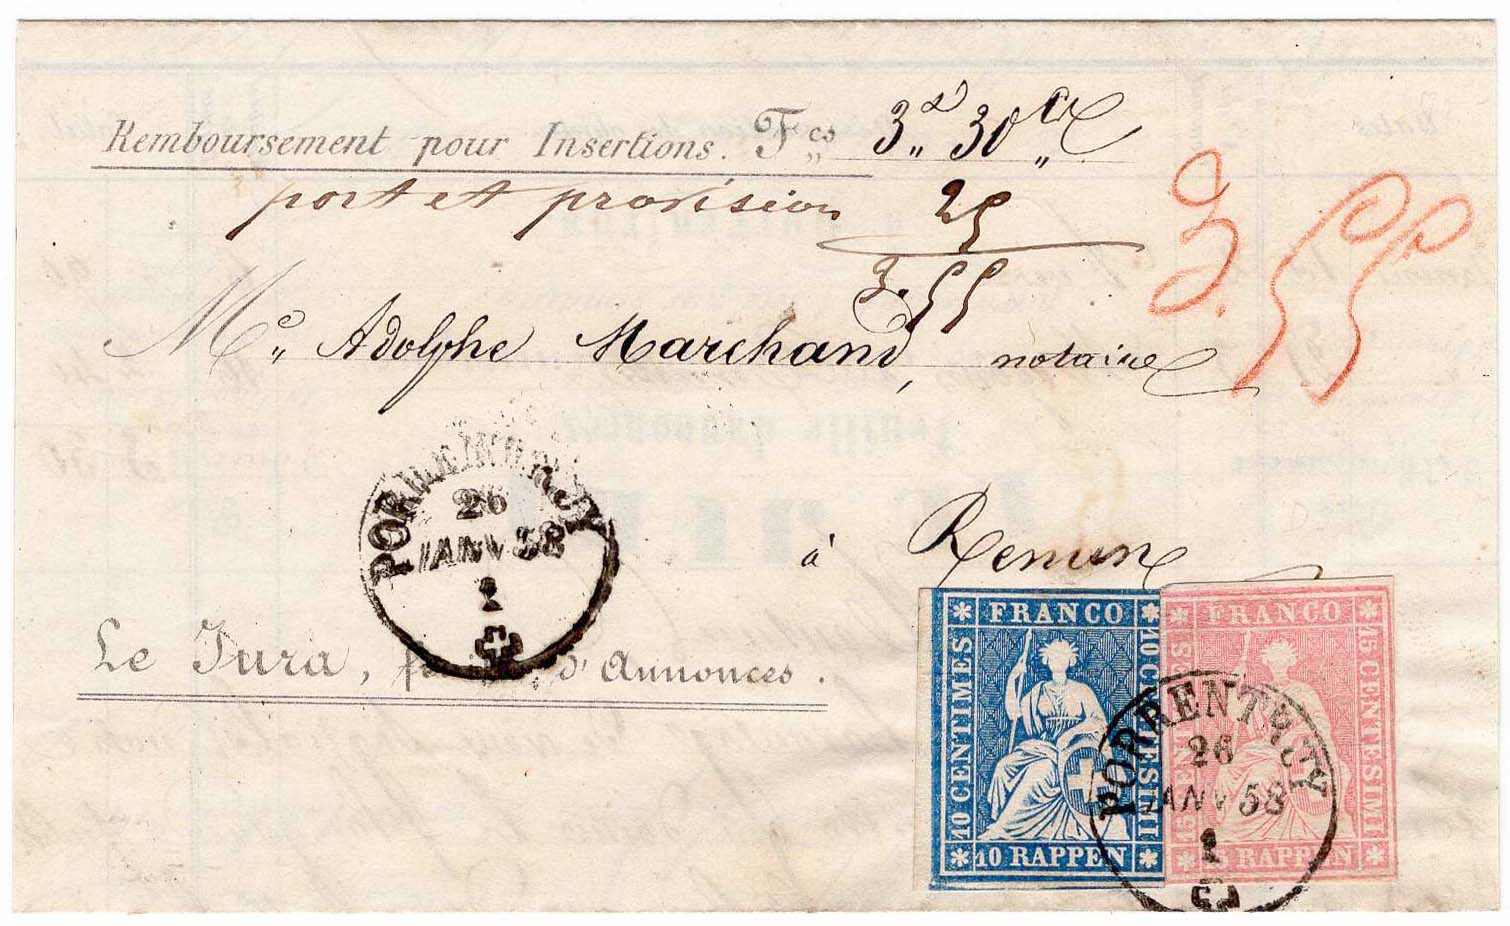 Remboursement pour Insertions. Fcs 3 " 30 "
port et provision 25
3.55
3.55
Mr Adolphe Marchand, notaire
à Renan
PORRENTRUY
26
JANV 58
1
Le Jura, d'Annonces.
FRANCO
10 CENTIMES
10 CENTESIMI
10 RAPPEN
FRANCO
15 CENTIMES
15 CENTESIMI
15 RAPPEN
PORRENTRUY
26
JANV 58
1